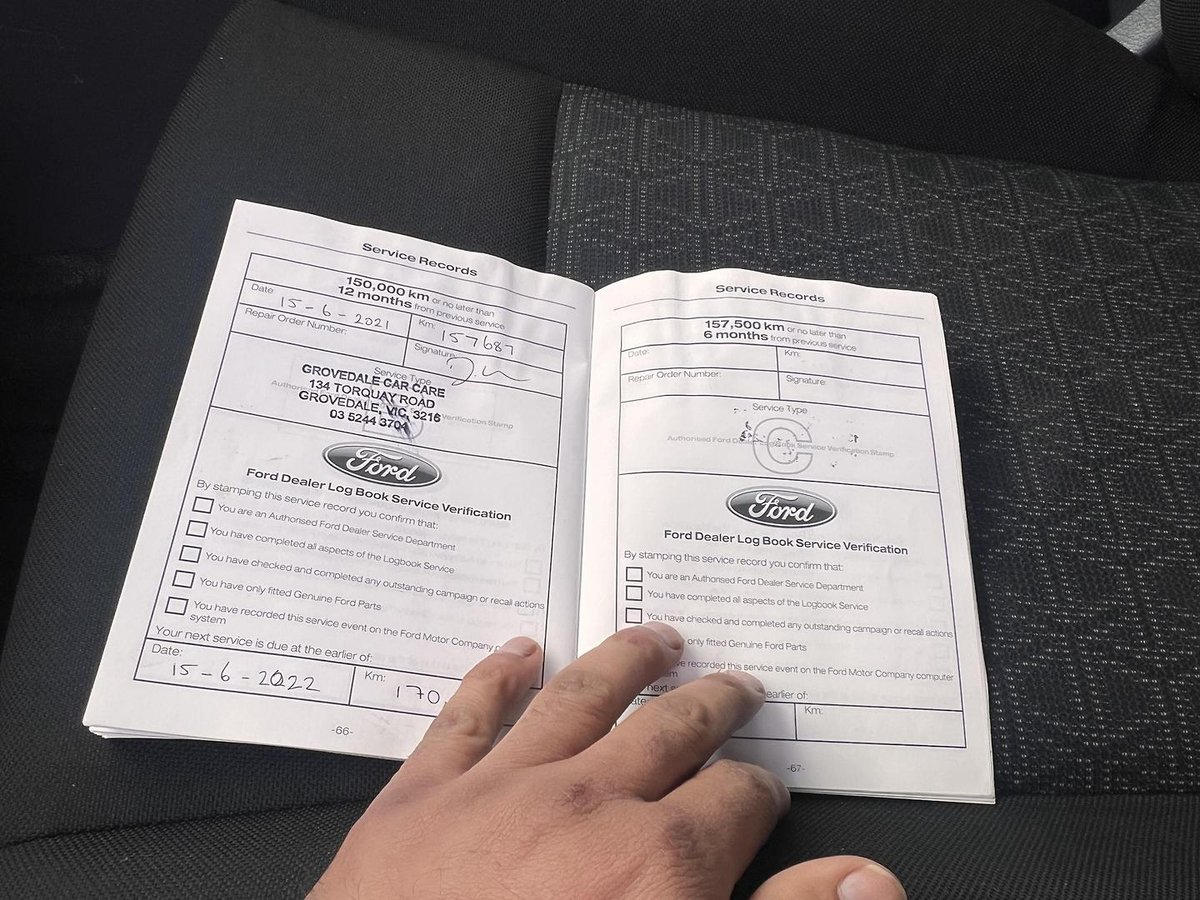 Service Records
150,000 km or no later than
12 months from previous service
Date: 15-6-2021
Km: 157687
Repair Order Number:
Signature:
Service Type
GROVEDALE CAR CARE
134 TORQUAY ROAD
GROVEDALE, VIC, 3216
03 5244 3704
Verification Stamp
Ford
Ford Dealer Log Book Service Verification
By stamping this service record you confirm that:
You are an Authorised Ford Dealer Service Department
You have completed all aspects of the Logbook Service
You have checked and completed any outstanding campaign or recall actions
You have only fitted Genuine Ford Parts
You have recorded this service event on the Ford Motor Company
system
Your next service is due at the earlier of:
Date: 15-6-2022
Km: 170
-66-
Service Records
157,500 km or no later than
6 months from previous service
Date:
Km:
Repair Order Number:
Signature:
Service Type
C
Authorised Ford Dealer Log Book Service Verification Stamp
Ford
Ford Dealer Log Book Service Verification
By stamping this service record you confirm that:
You are an Authorised Ford Dealer Service Department
You have completed all aspects of the Logbook Service
You have checked and completed any outstanding campaign or recall actions
only fitted Genuine Ford Parts
recorded this service event on the Ford Motor Company computer
next
earlier of:
Km:
-67-